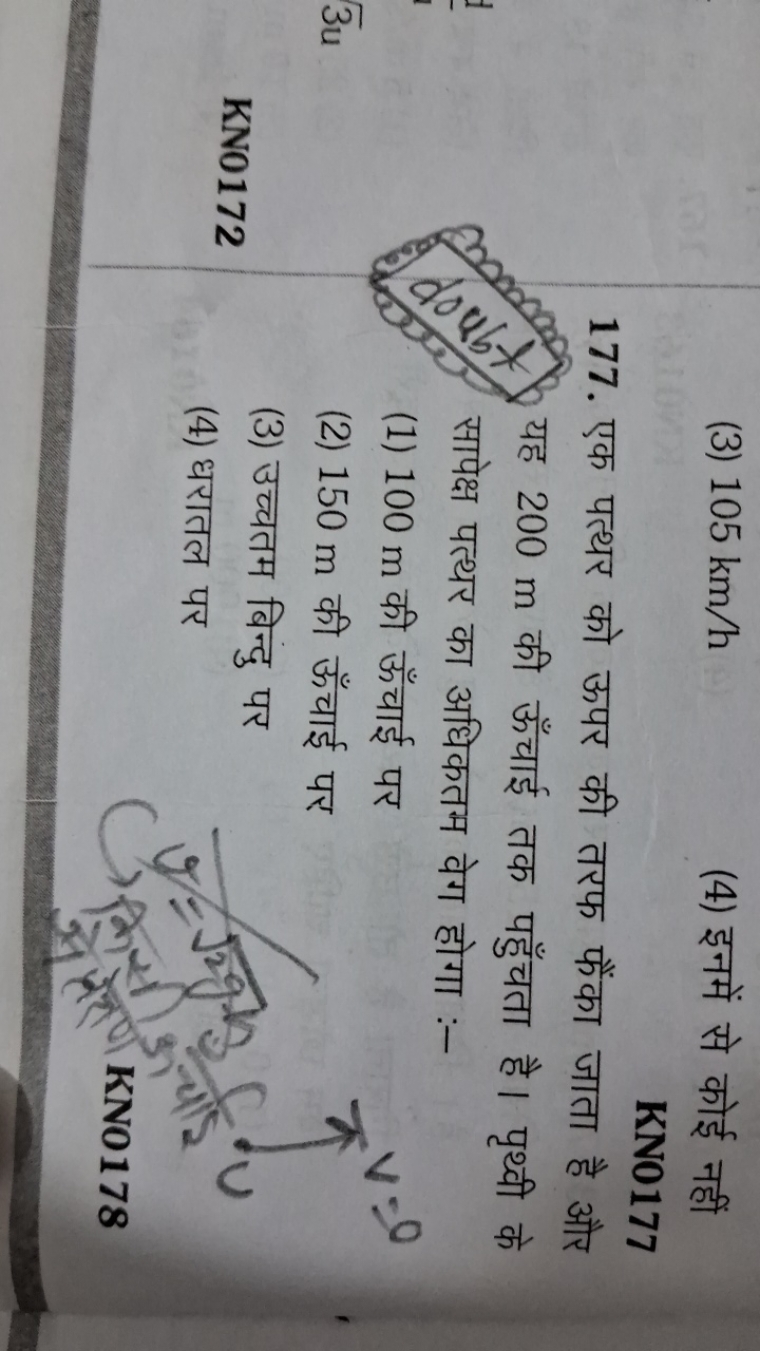 √3u
KN0172
(3) 105 km/h (4) इनमें से कोई नहीं
KN0177
177. एक पत्थर को ऊपर की तरफ फैंका जाता है और
यह 200 m की ऊँचाई तक पहुँचता है। पृथ्वी के
सापेक्ष पत्थर का अधिकतम वेग होगा :–
(1) 100 m की ऊँचाई पर
(2) 150 m की ऊँचाई पर
(3) उच्चतम बिन्दु पर
(4) धरातल पर
V=0
U
KN0178